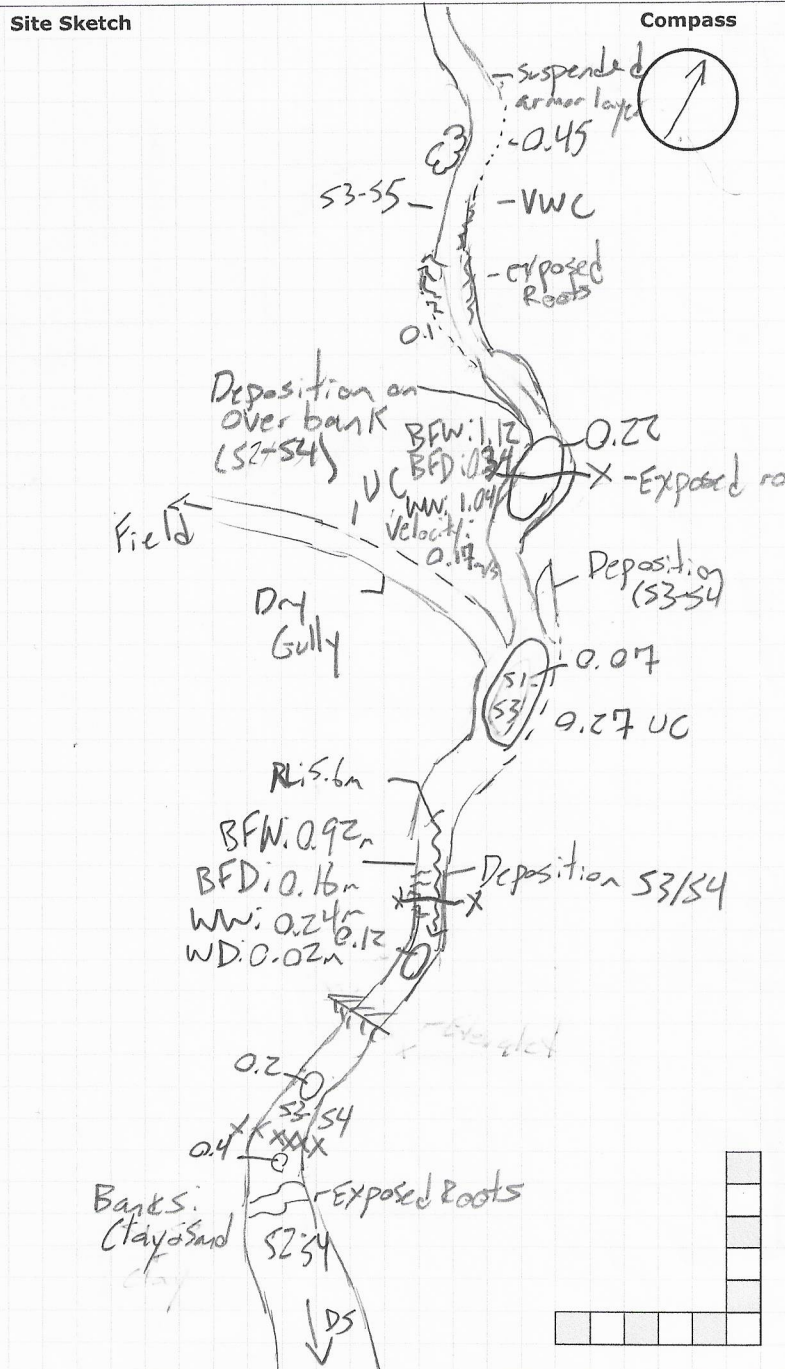 Site Sketch
Compass
suspended
armor layer
0.45
S3-S5
VWC
exposed
Roots
0.1
Deposition on
Over bank
(S2-S4)
BFW: 1.12
BFD: 0.34
WW: 1.04
Velocity:
0.17 m/s
0.22
X - Exposed ro
UC
Field
Dry
Gully
Deposition
(S3-S4
0.07
S1-
S3
0.27 UC
RL: 5.6m
BFW: 0.92m
BFD: 0.16m
WW: 0.24m
WD: 0.02m
0.12
Deposition S3/S4
X X
0.2
S3-S4
X X XXXX
0.4
Exposed Roots
Banks:
Clay & Sand
clay
S2-S4
DS